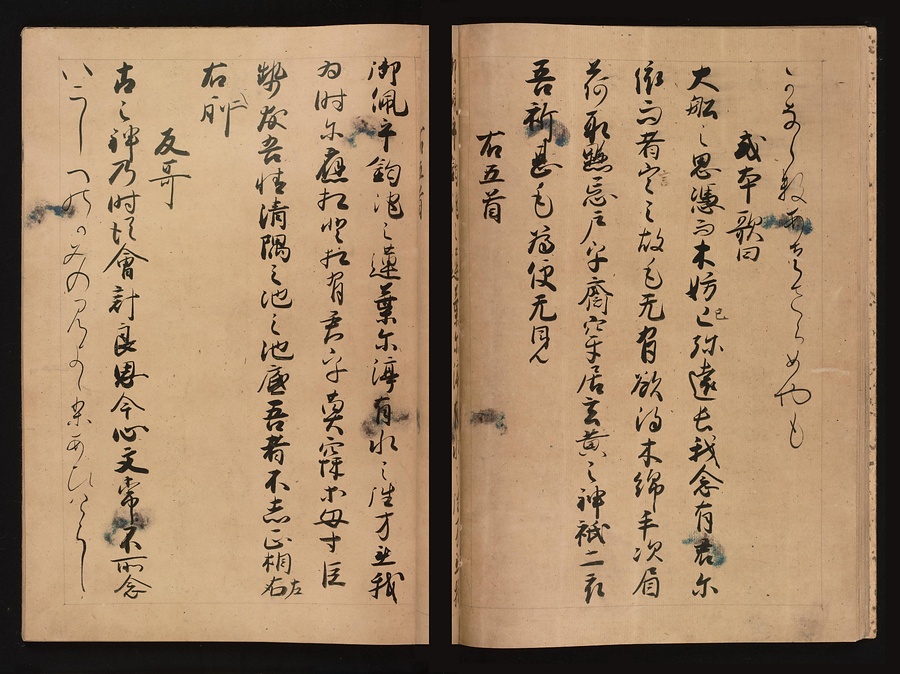 かならすあはさらめやも
或本歌曰
大船之思憑而木妨己弥遠長我念有君尓
依而者言之故毛无有欲得木綿手次肩
荷取懸忌戸乎齋穿居玄黄之神祇二衣
吾祈甚毛為便无見
右五首
御佩乎釼池之蓮葉尓渟有水之徃方無我
為時尓應相登相有君乎莫寐等母寸巨
勢友吾情清隅之池之池底吾者不忘正相左右
反哥
古之神乃時従會計良思今心文常不所念
いにしへのかみのときよりあひけらし